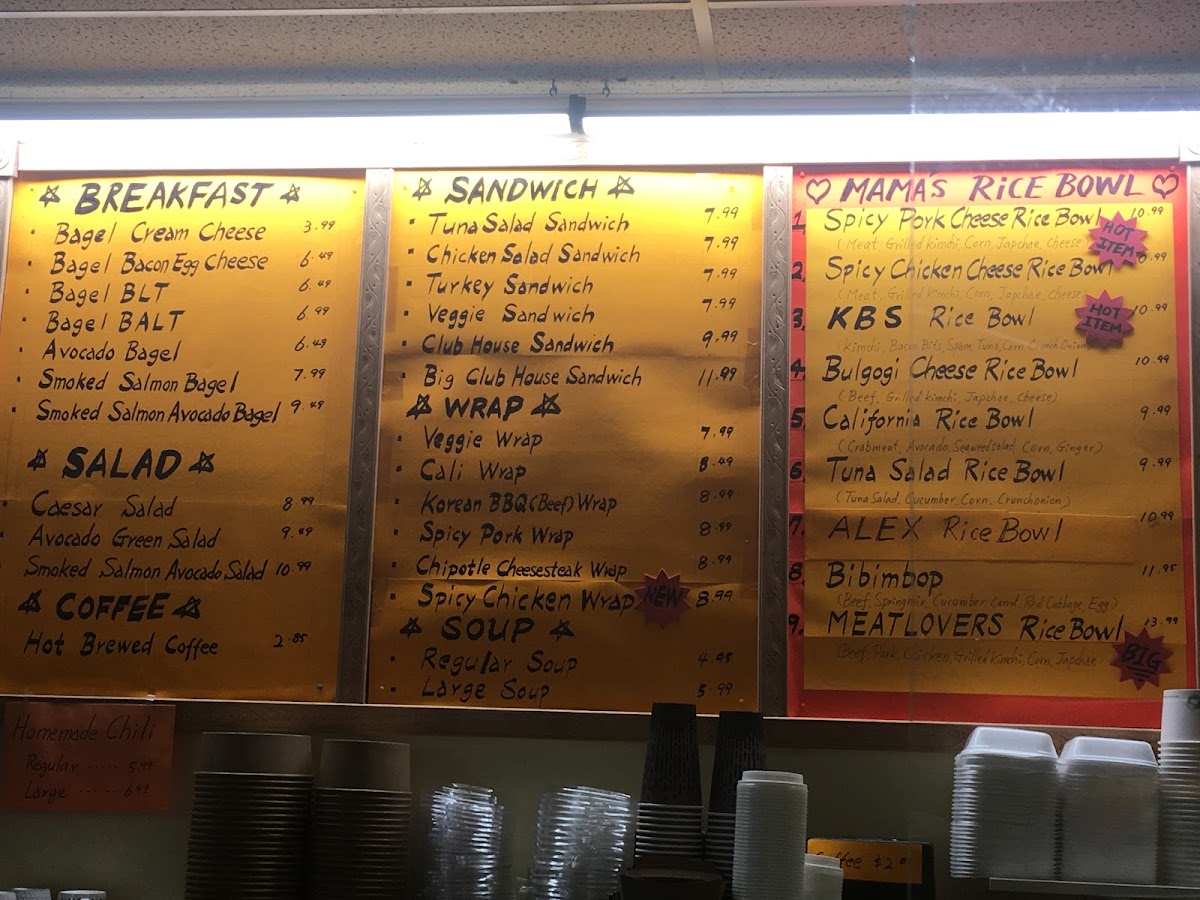 BREAKFAST
Bagel Cream Cheese 3.99
Bagel Bacon Egg Cheese 6.49
Bagel BLT 6.49
Bagel BALT 6.99
Avocado Bagel 6.49
Smoked Salmon Bagel 7.99
Smoked Salmon Avocado Bagel 9.49
SALAD
Caesar Salad 8.99
Avocado Green Salad
Smoked Salmon Avocado Salad 10.99
COFFEE
Hot Brewed Coffee 2.85
SANDWICH
Tuna Salad Sandwich 7.99
Chicken Salad Sandwich 7.99
Turkey Sandwich 7.99
Veggie Sandwich 7.99
Club House Sandwich 9.99
Big Club House Sandwich 11.99
WRAP
Veggie Wrap 7.99
Cali Wrap 8.49
Korean BBQ (Beef) Wrap 8.99
Spicy Pork Wrap 8.99
Chipotle Cheesesteak Wrap 8.99
Spicy Chicken Wrap NEW 8.99
SOUP
Regular Soup 4.95
Large Soup 5.99
MAMA'S RICE BOWL
1. Spicy Pork Cheese Rice Bowl 10.99
(Meat, Grilled Kimchi, Corn, Japchae, Cheese)
HOT ITEM
2. Spicy Chicken Cheese Rice Bowl
(Meat, Grilled Kimchi, Corn, Japchae, Cheese)
3. KBS Rice Bowl 10.99
HOT ITEM
(Kimchi, Bacon Bits, Spam, Tuna, Corn, Crunch Onion)
4. Bulgogi Cheese Rice Bowl 10.99
(Beef, Grilled Kimchi, Japchae, Cheese)
5. California Rice Bowl 9.99
(Crabmeat, Avocado, Seaweedsalad, Corn, Ginger)
6. Tuna Salad Rice Bowl 9.99
(Tuna Salad, Cucumber, Corn, Crunchonion)
7. ALEX Rice Bowl 10.99
8. Bibimbop 11.95
(Beef, Springmix, Cucumber, Red Cabbage, Egg)
9. MEATLOVERS Rice Bowl 13.99
(Beef, Pork, Chicken, Grilled Kimchi, Corn, Japchae)
BIG
Homemade Chili
Regular ..... 5.99
Large ...... 6.99
Coffee